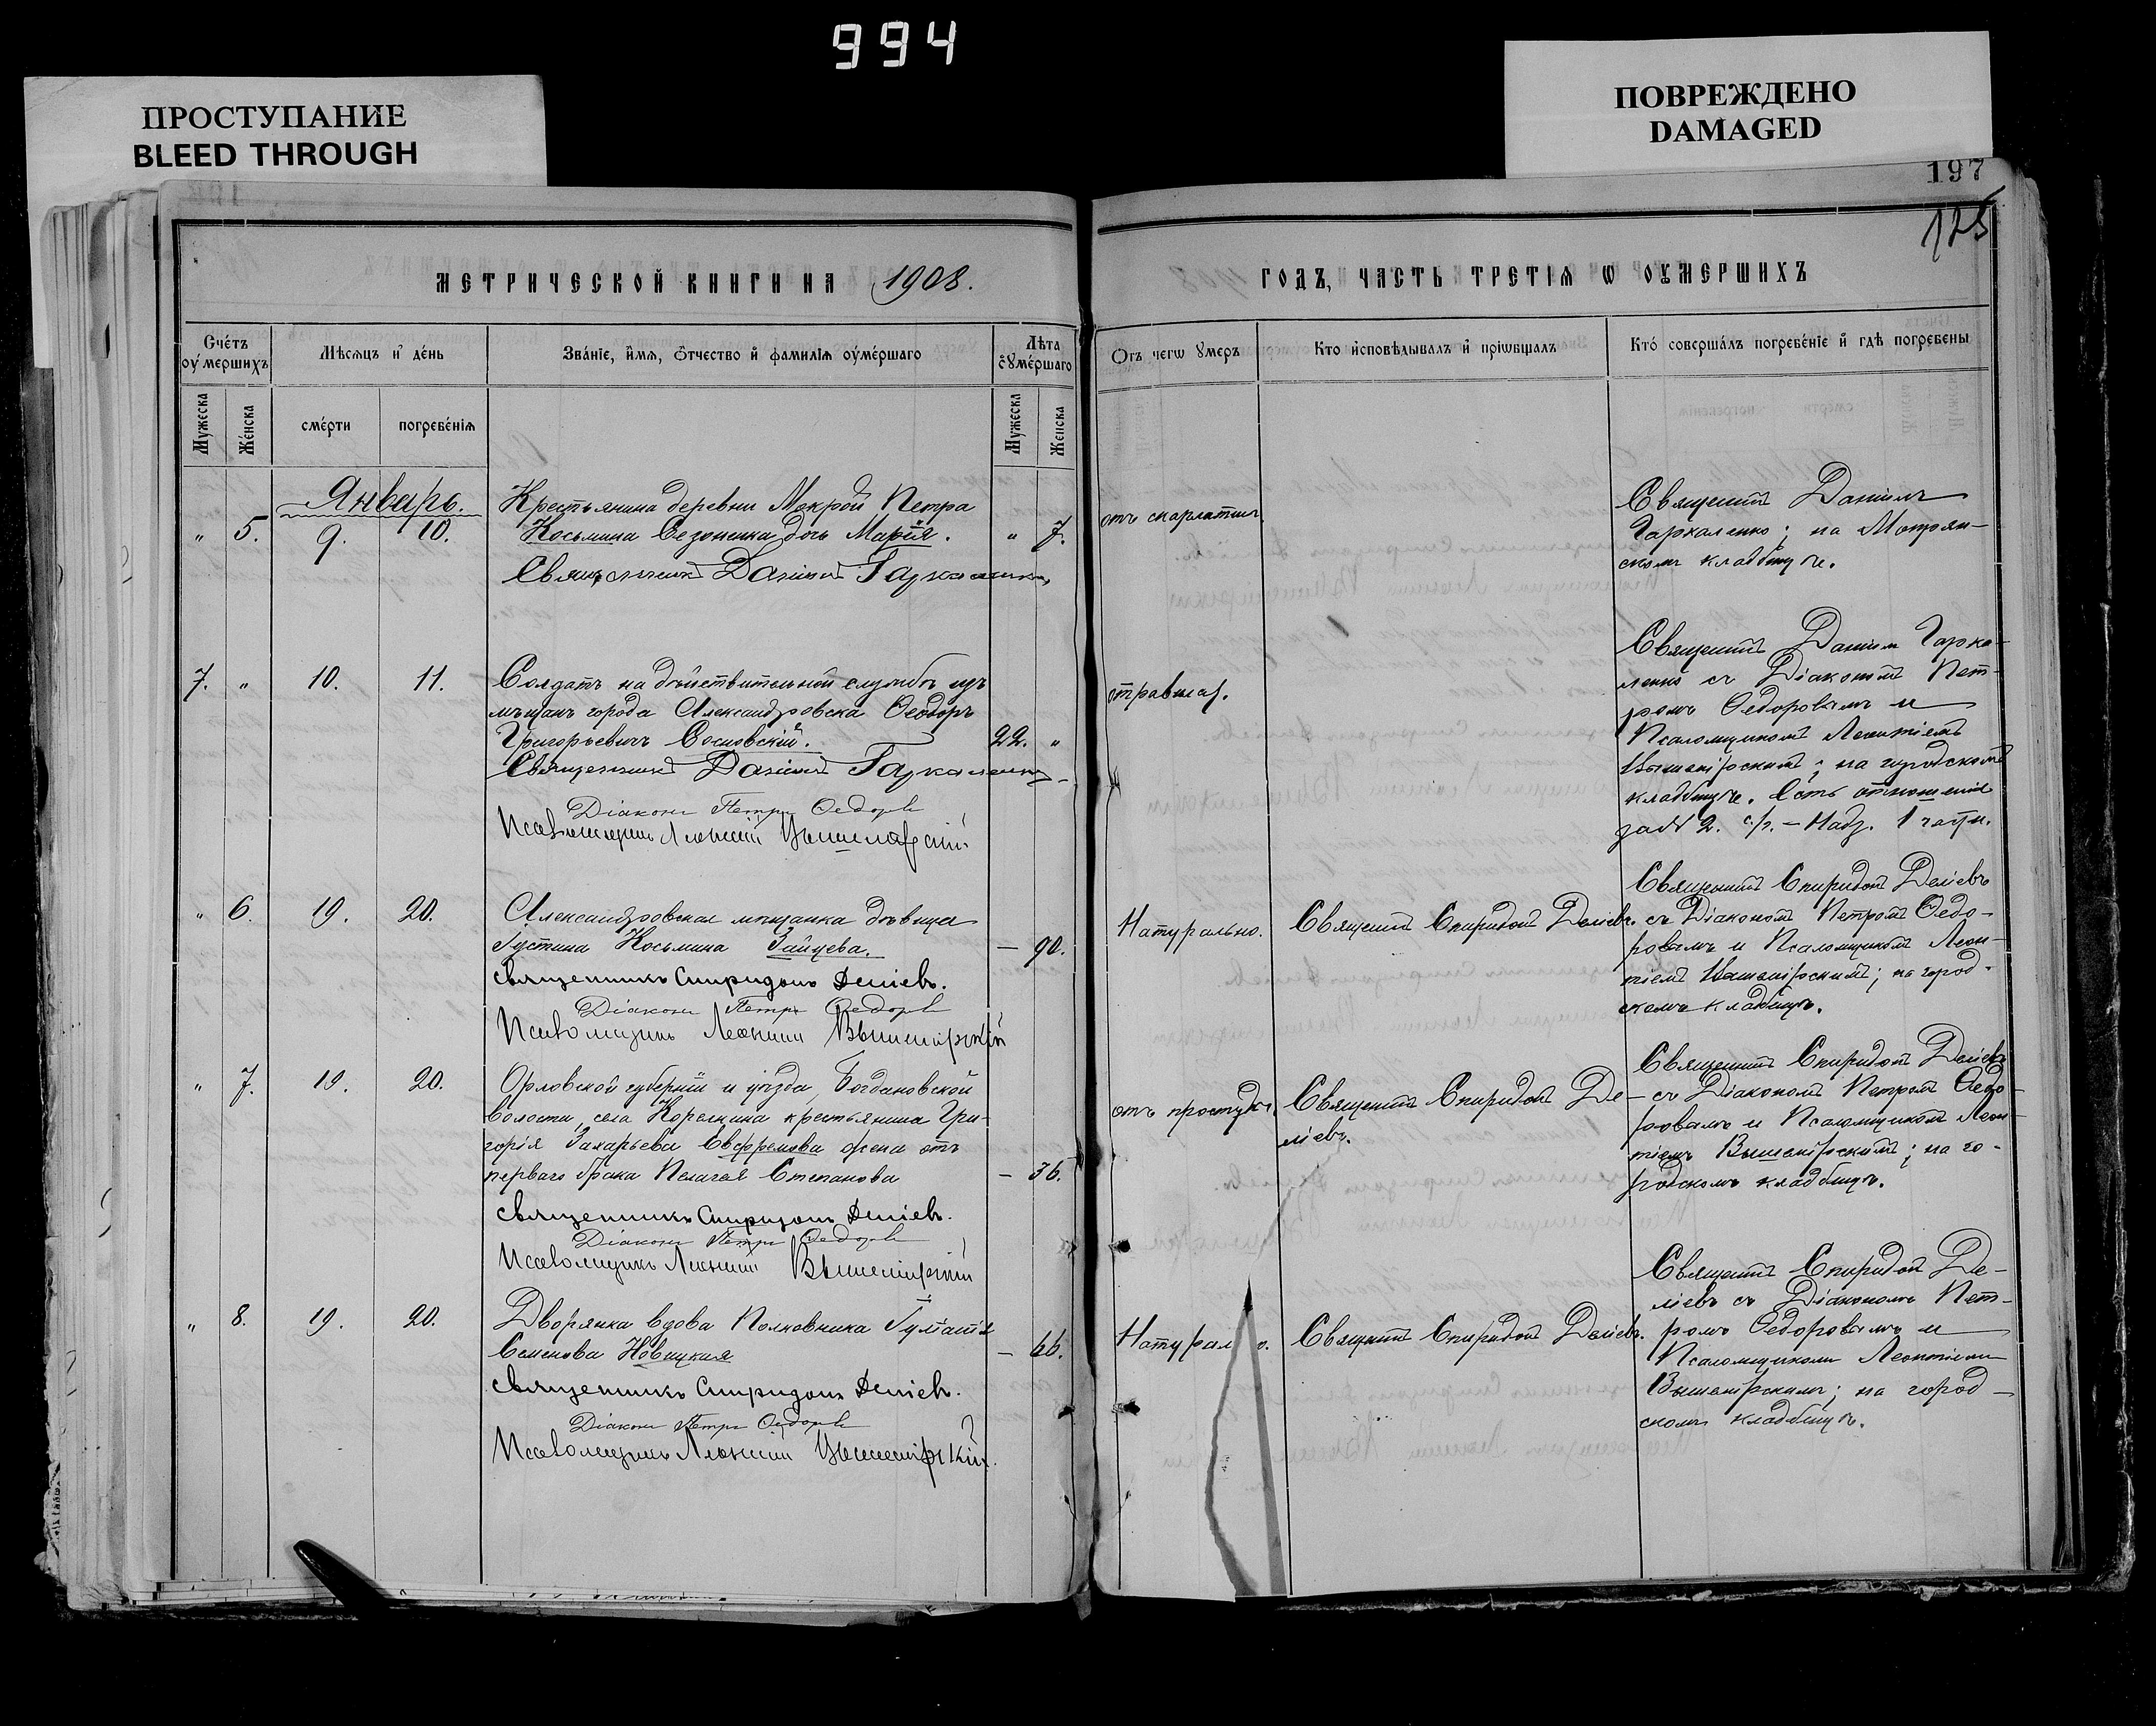 994
ПРОСТУПАНИЕ
BLEED THROUGH
ПОВРЕЖДЕНО
DAMAGED
197
125
МЕТРИЧЕСКОЙ КНИГИ НА 1908.
ГОДЪ, ЧАСТЬ ТРЕТІѦ Ѡ ОУМЕРШИХЪ
Счетъ оумершихъ
Мѣсѧцъ и день
Званіе, имѧ, отчество и фамиліѧ оумершаго
Лѣта оумершаго
Отъ чегѡ умеръ
Кто исповѣдывалъ и пріѡбщалъ
Кто совершалъ погребеніе и гдѣ погребены
Мужеска
Женска
смерти
погребеніѧ
Мужеска
Женска
Январь.
" 5. 9. 10.
Крестьянина деревни Мокрой Петра
Косьмина дочь Марія.
" 7.
Священникъ Даніилъ Гаркаленко
отъ скарлатин
Священникъ Даніилъ
Гаркаленко; на
скомъ кладбищѣ.
7. " 10. 11.
Солдатъ на дѣйствительной службѣ изъ
мѣщанъ города Александровска Ѳеодоръ
Григорьевичъ Сосновскій.
22. "
Священникъ Даніилъ Гаркаленко
Діаконъ Петръ Ѳедоровъ
Псаломщикъ Леонтій
отравился.
Священникъ Даніилъ Гарка-
ленко съ Діакономъ Пет-
ромъ Ѳедоровымъ и
Псаломщикомъ Леонтіемъ
на городскомъ
кладбищѣ. Есть отношеніе
за № 2. 1 части.
" 6. 19. 20.
Александровская мѣщанка дѣвица
Іустина Косьмина Зайцева.
— 90.
священникъ Спиридонъ Деліевъ.
Діаконъ Петръ Ѳедоровъ
Псаломщикъ Леонтій
Натурально.
Священникъ Спиридонъ Деліевъ.
Священникъ Спиридонъ Деліевъ
съ Діакономъ Петромъ Ѳедо-
ровымъ и Псаломщикомъ Леон-
тіемъ на город-
скомъ кладбищѣ.
" 7. 19. 20.
Орловской губерніи и уѣзда, Богдановской
волости, села крестьянина Гри-
горія Захарьева Евфремова жена отъ
перваго брака Пелагея Степанова
— 36.
священникъ Спиридонъ Деліевъ.
Діаконъ Петръ Ѳедоровъ
Псаломщикъ Леонтій
отъ простуды.
Священникъ Спиридонъ Де-
ліевъ.
Священникъ Спиридонъ Деліевъ
съ Діакономъ Петромъ Ѳедо-
ровымъ и Псаломщикомъ Леон-
тіемъ на го-
родскомъ кладбищѣ.
" 8. 19. 20.
Дворянка вдова Полковника
Семенова Новицкая
— 66.
священникъ Спиридонъ Деліевъ.
Діаконъ Петръ Ѳедоровъ
Псаломщикъ Леонтій
Натурал о.
Священникъ Спиридонъ Деліевъ.
Священникъ Спиридонъ Де-
ліевъ съ Діакономъ Пет-
ромъ Ѳедоровымъ и
Псаломщикомъ Леонтіемъ
на город-
скомъ кладбищѣ.